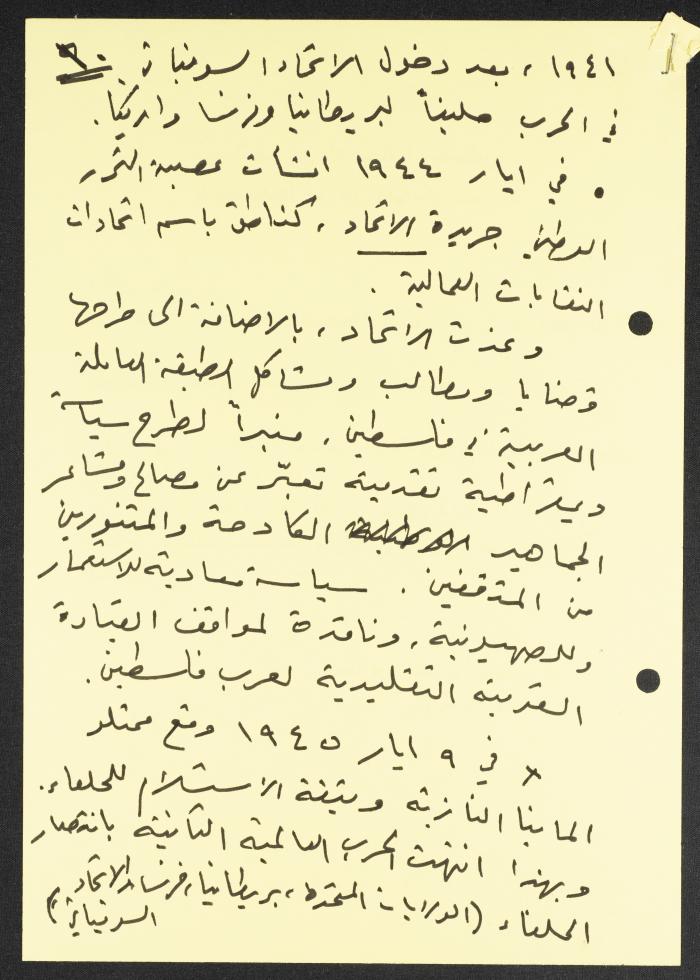 ٩٠
١٩٤١، بعد دخول الاتحاد السوفياتي
في الحرب حليفاً لبريطانيا وفرنسا وامريكا.
• في ايار ١٩٤٤ انشأت عصبة التحرر
الوطني جريدة الاتحاد، كناطق باسم اتحادات
النقابات العمالية.
وغدت الاتحاد، بالاضافة الى طرحها
قضايا ومطالب ومشاكل الطبقة العاملة
العربية في فلسطين، منبراً لطرح سياسة
ديمقراطية تقدمية تعبّر عن مصالح ومشاعر
الجماهير الكادحة والمتنورين
من المثقفين. سياسة معادية للاستعمار
وللصهيونية، وناقدة لمواقف القيادة
القومية التقليدية لعرب فلسطين.
x في ٩ ايار ١٩٤٥ وقع ممثلو
المانيا النازية وثيقة الاستسلام للحلفاء.
وبهذا انتهت الحرب العالمية الثانية بانتصار
الحلفاء (الولايات المتحدة، بريطانيا، فرنسا والاتحاد
السوفياتي)